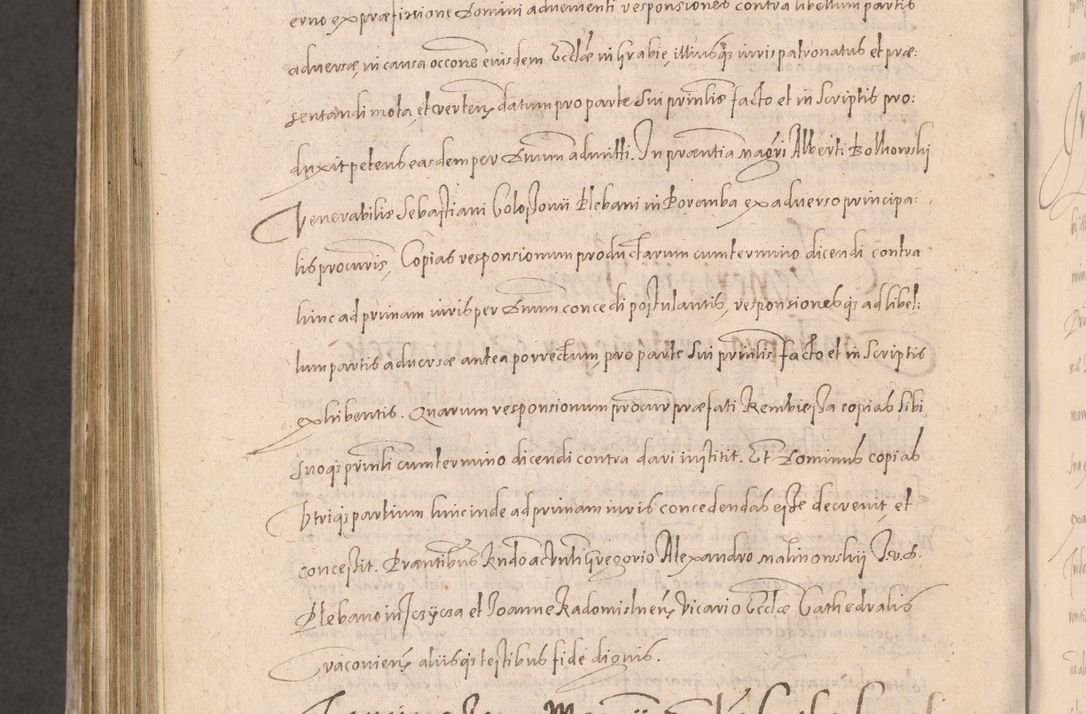 erno ex præfixione Domini advenienti responsiones contra libellum partis
adversæ, in causa occone eiusdem Eccl̃æ in Grabie, illiusq; iuris patronatus et præ:
sentandi mota, et verten̄ datum pro parte sui prin̄lis facto et in scriptis pro:
duxit petens easdem per Dn̄um admitti. In præn̄tia Mag̃ri Alberti Bolkowskij
Venerabilis Sebastiani Goloſsonii Plebani in Poremba ex adverso principa:
lis procuris, Copias responsionum productarum cum termino dicendi contra
hinc ad primam iuris per Dn̄um concedi postulantis, responsionesq; ad libel:
lum partis adversæ antea porrectum, pro parte sui prin̄lis facto et in scriptis
exhibentis. Quarum responsionum procur præfati Rembieſsa copias sibi
suoq; prin̄li cum termino dicendi contra dari institit. Et Dominus copias
Vtriq; partium hinc inde ad primam iuris concedendas eſse decrevit, et
conceſsit. Præn̄tibus Rn̄do ac
Gregorio Alexandro Malinowskij I.V.D.
Plebano in Jczÿcza et Joanne Radomislien̄ Vicario Eccl̃æ Cathedralis
Cracovien̄ aliisq; testibus fide dignis.